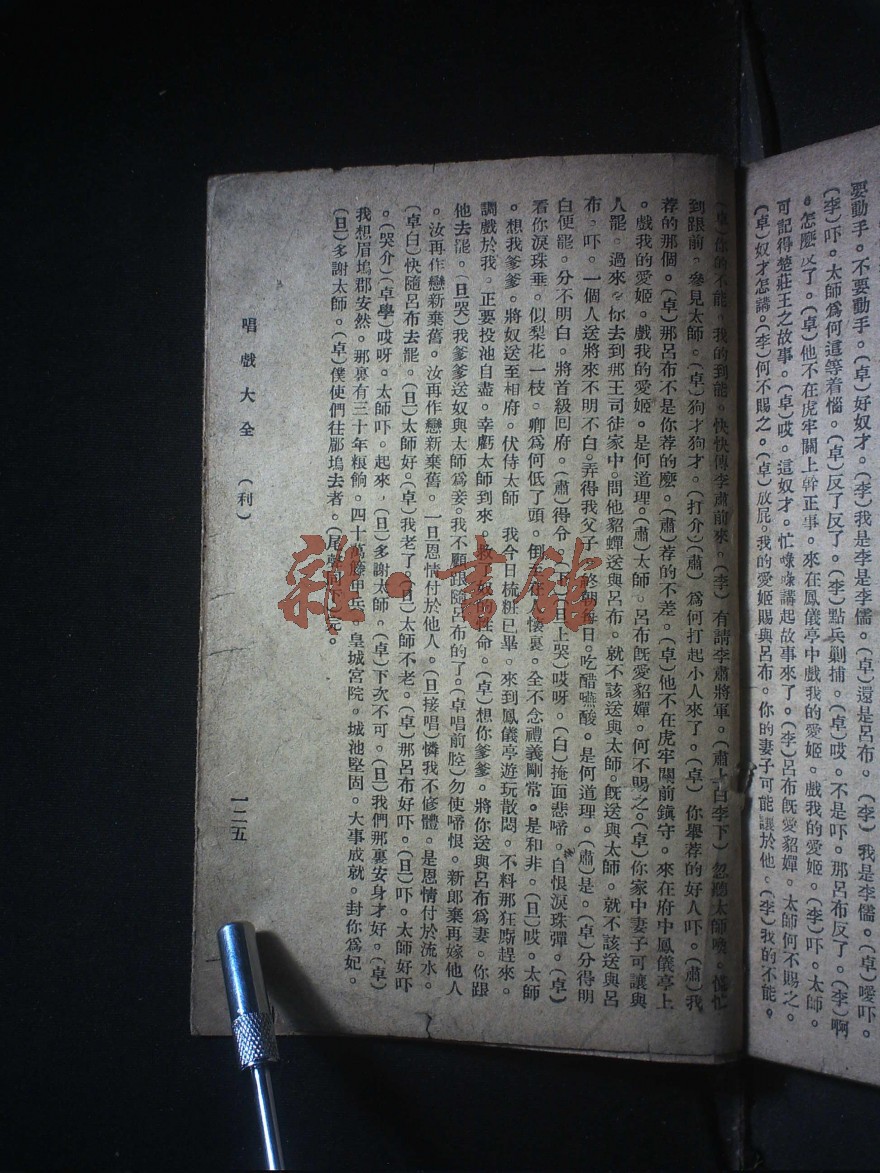 要動手。不要動手。(卓)好奴才。(李)我是李是李儒。(卓)還是呂布。(李)我是李儒。(卓)噯吓。
(李)吓。太師爲何這等着惱。(卓)反了反了。(李)點兵剿捕。(卓)哎。不是吓。那呂布反了。(李)啊
。怎麽反了。(卓)他不在虎牢關上幹正事。來在鳳儀亭中戲我的愛姬。戲我的愛姬。(李)吓。太師。
可記得楚莊王之故事。(卓)哎。這奴才。忙喙喙講起故事來了。(李)呂布旣愛貂嬋。太師何不賜之。
(卓)奴才怎講。(李)何不賜之。(卓)放屁。我的愛姬賜與呂布。你的妻子可能讓於他。(李)我的不能。
(卓)你的不能。我的到能。快快傳李肅前來。(李)有請李肅將軍。(肅上白李下)忽聽太師喚。慌忙
到跟前。參見太師。(卓)狗才狗才。(打介)(肅)爲何打起小人來了。(卓)你舉荐的好人吓。(肅)我
荐的那個。(卓)那呂布不是你荐的麽。(肅)荐的不差。(卓)他不在虎牢關前鎮守。來在府中鳳儀亭上
。戲我的愛姬。戲我的愛姬。是何道理。(肅)太師。呂布旣愛貂嬋。何不賜之。(卓)你家中妻子可讓與
人罷。過來。你去到那王司徒家中。問他貂蟬送與呂布。就不該送與太師。旣送與太師。就不該送與呂
布。吓。一個人送將來不明不白。弄得我父子終朝每日。吃醋嚥酸。是何道理。(肅)是。(卓)分得明
白便罷。分不明白。將首級回府。(肅)得令。(下)(旦上哭)哎呀。(白)掩面悲啼。自恨淚珠彈。(卓)
看你淚珠垂。似梨花一枝。卿爲何低了頭。倒在人懷裏。全不念禮義剛常。是和非。(旦)哎。太師
。想我爹爹。將奴送至相府。伏侍太師 我今日梳粧已畢。來到鳳儀亭遊玩散悶。不料那狂廝趕來。
調戲於我。正要投油自盡。幸虧太師到來。救了奴的性命。(卓)想你爹爹。將你送與呂布爲妻。你跟
他去罷。(旦哭)我爹爹送奴與太師爲妾。我不願跟隨呂布的了。(卓唱前腔)勿使啼恨。新郎棄再嫁他人
。汝再作戀新棄舊。汝再作戀新棄舊。一旦恩情付於他人。(旦接唱)憐我不修體。是恩情付於流水。
(卓白)快隨呂布去罷。(旦)太師好。(卓)我老了。(旦)太師不老。(卓)那呂布好吓。(旦)吓。太師好吓
。(哭介)(卓學)哎呀。太師吓。起來。(旦)多謝太師。(卓)下次不可。(旦)我們那裏安身才好。(卓)
我想眉塢郡安然。那裏有三十年粮餉。四十萬勝甲兵。皇城宮院。城池堅固。大事成就。封你爲妃。
(旦)多謝太師。(卓)僕使們往郿塢去者。(尾聲同下)完。
唱戲大全 (利) 一二五
雜·書館